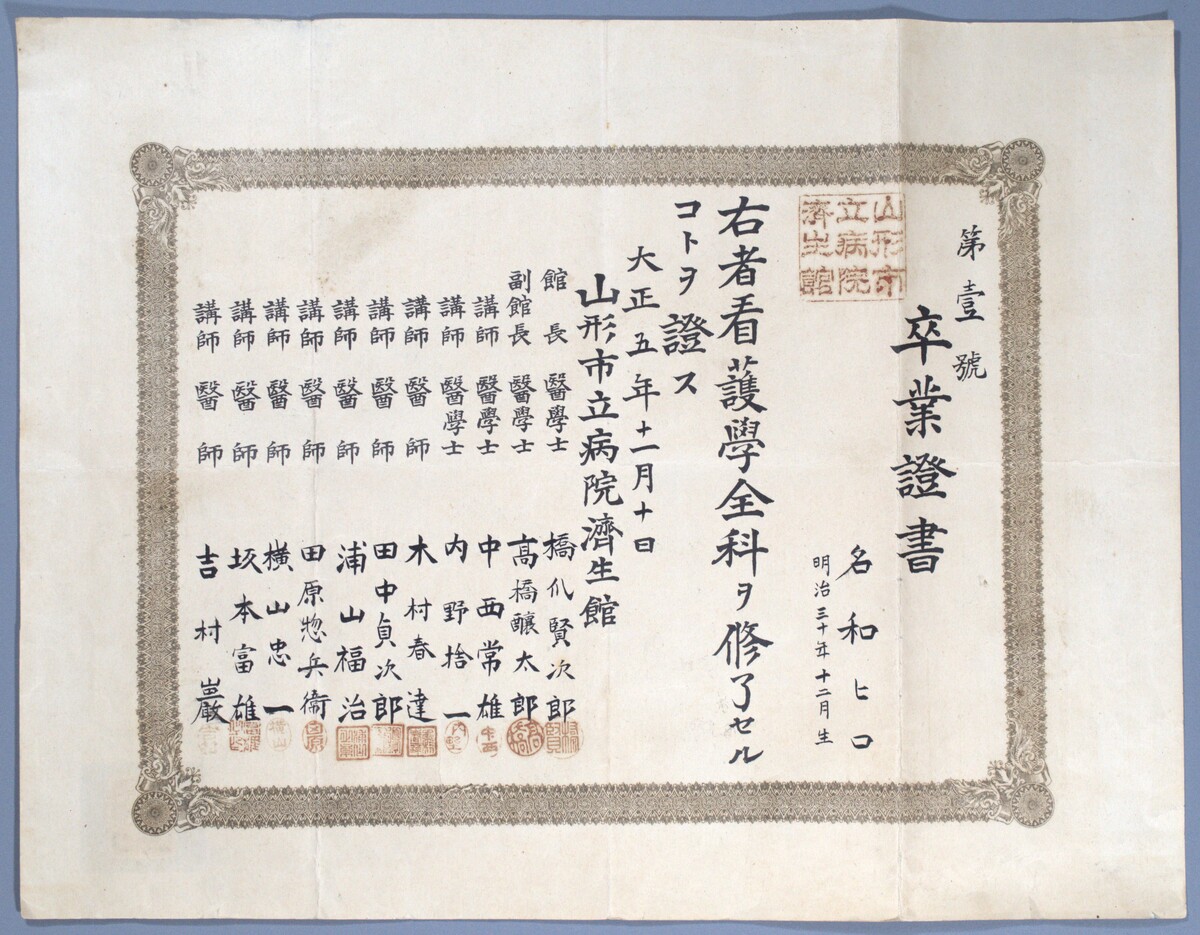 第壹號
卒業證書
名和ヒロ
明治三十年十二月生
山形市
立病院
濟生館
右者看護學全科ヲ修了セル
コトヲ證ス
大正五年十一月十日
山形市立病院濟生館
館長 醫學士 橋爪賢次郎
副館長 醫學士 高橋釀太郎
講師 醫學士 中西常雄
講師 醫學士 内野捨一
講師 醫師 木村春達
講師 醫師 田中貞次郎
講師 醫師 浦山福治
講師 醫師 田原惣兵衞
講師 醫師 横山忠一
講師 醫師 坂本富雄
講師 醫師 吉村巖